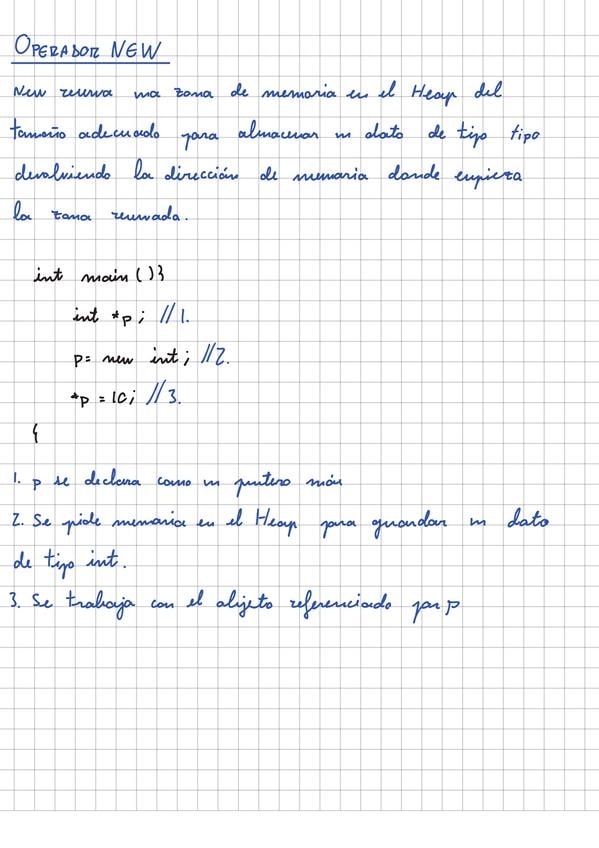 OPERADOR NEW
New reserva una zona de memoria en el Heap del
tamaño adecuado para almacenar un dato de tipo tipo
devolviendo la dirección de memoria donde empieza
la zona reservada.
int main ( ) }
int *p; // 1.
p= new int; //2.
*p = 10; // 3.
{
1. p se declara como un puntero más
2. Se pide memoria en el Heap para guardar un dato
de tipo int.
3. Se trabaja con el objeto referenciado por p